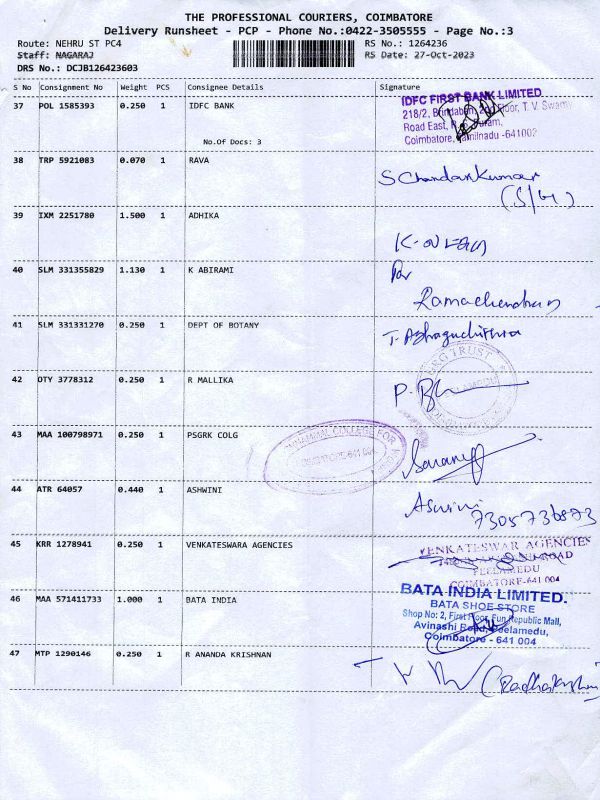 THE PROFESSIONAL COURIERS, COIMBATORE
Delivery Runsheet - PCP - Phone No.:0422-3505555 - Page No.:3
Route: NEHRU ST PC4 RS No.: 1264236
Staff: NAGARAJ RS Date: 27-Oct-2023
DRS No.: DCJB126423603
S No Consignment No Weight PCS Consignee Details Signature
37 POL 1585393 0.250 1 IDFC BANK
No.Of Docs: 3
IDFC FIRST BANK LIMITED
218/2, Floor, T. V. Swamy
Road East,
Coimbatore, Tamilnadu -641002
38 TRP 5921083 0.070 1 RAVA
S Chandankumar
39 IXM 2251780 1.500 1 ADHIKA
40 SLM 331355829 1.130 1 K ABIRAMI
for
Ramachendran
41 SLM 331331270 0.250 1 DEPT OF BOTANY
TRUST
42 OTY 3778312 0.250 1 R MALLIKA
43 MAA 100798971 0.250 1 PSGRK COLG
COLLEGE FOR
641 004
44 ATR 64057 0.440 1 ASHWINI
Aswini
7305736873
45 KRR 1278941 0.250 1 VENKATESWARA AGENCIES
VENKATESWAR AGENCIES
ROAD
PEELAMEDU
COIMBATORE-641 004
46 MAA 571411733 1.000 1 BATA INDIA
BATA INDIA LIMITED.
BATA SHOE STORE
Shop No: 2, First Floor, Fun Republic Mall,
Avinashi Road, Peelamedu,
Coimbatore - 641 004
47 MTP 1290146 0.250 1 R ANANDA KRISHNAN